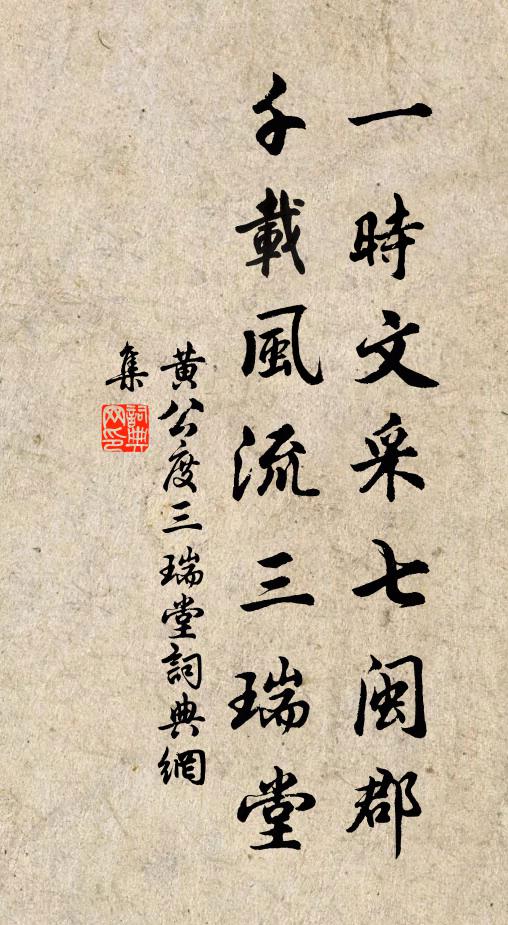 一時文采七闽郡
千載風流三瑞堂
黃公度三瑞堂詞典網
集
詞典
网印